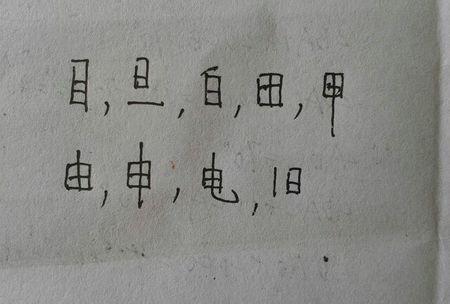 目,旦,自,田,甲
由,申,电,旧